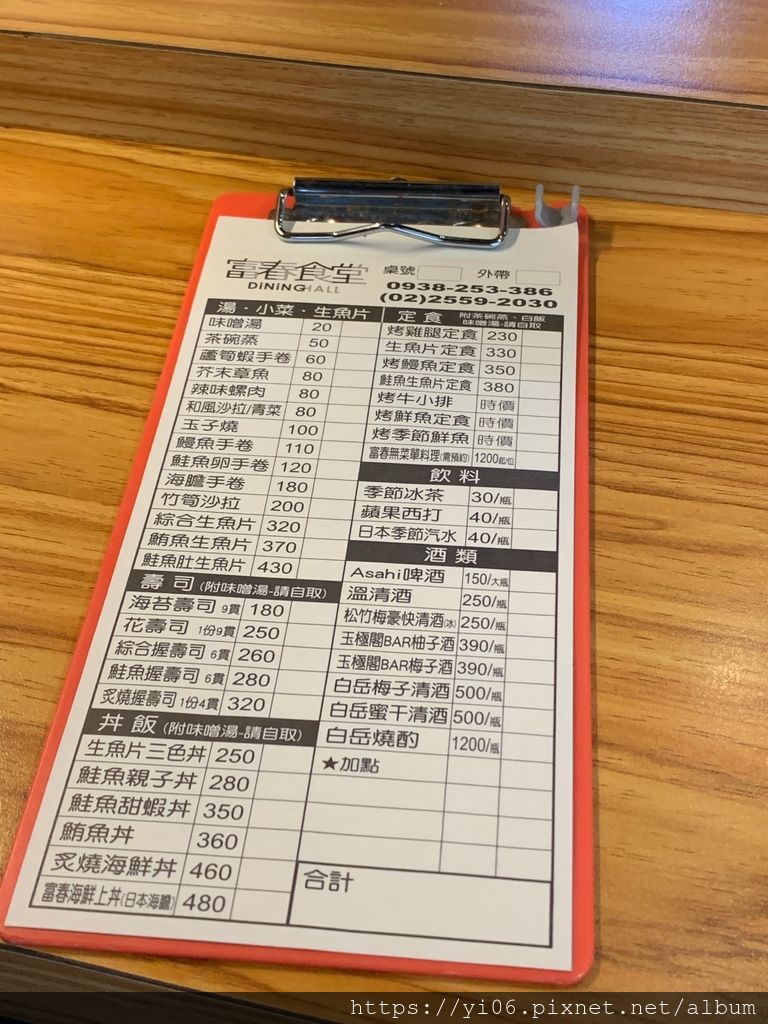 富春食堂
DiNiNG HALL
桌號 外帶
0938-253-386
(02)2559-2030
湯・小菜・生魚片
味噌湯 20
茶碗蒸 50
蘆筍蝦手卷 60
芥末章魚 80
辣味螺肉 80
和風沙拉/青菜 80
玉子燒 100
鰻魚手卷 110
鮭魚卵手卷 120
海膽手卷 180
竹筍沙拉 200
綜合生魚片 320
鮪魚生魚片 370
鮭魚肚生魚片 430
壽司(附味噌湯-請自取)
海苔壽司 9貫 180
花壽司 1份9貫 250
綜合握壽司 6貫 260
鮭魚握壽司 6貫 280
炙燒握壽司 1份4貫 320
丼飯(附味噌湯-請自取)
生魚片三色丼 250
鮭魚親子丼 280
鮭魚甜蝦丼 350
鮪魚丼 360
炙燒海鮮丼 460
富春海鮮上丼(日本海膽) 480
定食 附茶碗蒸、白飯
味噌湯-請自取
烤雞腿定食 230
生魚片定食 330
烤鰻魚定食 350
鮭魚生魚片定食 380
烤牛小排 時價
烤鮮魚定食 時價
烤季節鮮魚 時價
富春無菜單料理(需預約) 1200起/位
飲料
季節冰茶 30/瓶
蘋果西打 40/瓶
日本季節汽水 40/瓶
酒類
Asahi啤酒 150/大瓶
溫清酒 250/瓶
松竹梅豪快清酒(冰) 250/瓶
玉極閣BAR柚子酒 390/瓶
玉極閣BAR梅子酒 390/瓶
白岳梅子清酒 500/瓶
白岳蜜干清酒 500/瓶
白岳燒酌 1200/瓶
★加點
合計
https://yi06.pixnet.net/album